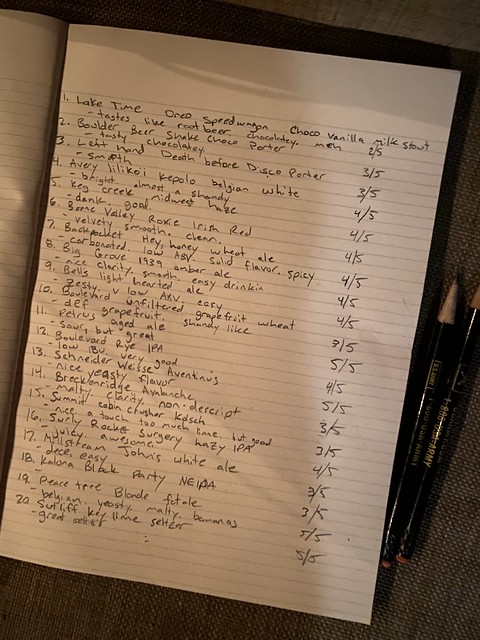 1. Lake Time Oreo Speedwagon Choco vanilla milk stout
- tastes like root beer. chocolatey. meh 2/5
2. Boulder Beer Shake Choco Porter
- tasty chocolatey 3/5
3. Left hand Death before Disco Porter
- smooth 3/5
4. Avery liliko'i kepolo belgian white
- bright, almost a shandy 4/5
5. Keg creek midwest haze
- dank, good. 4/5
6. Boone Valley Roxie Irish Red
- velvety smooth, clean. 4/5
7. Backpocket Hey, honey wheat ale
- carbonated, low ABV. solid flavor. spicy 4/5
8. Big Grove 1939 amber ale
- nice clarity. smooth easy drinkin 4/5
9. Bells light hearted ale
- zesty, v low ABV, easy 4/5
10. Boulevard unfiltered grapefruit wheat
- def grapefruit. shandy like 3/5
11. Petrus aged ale
- sour, but great 5/5
12. Boulevard Rye IPA
- low IBU. very good 4/5
13. Schneider Weisse Aventinus
- nice yeasty flavor 5/5
14. Breckenridge Avalanche
- malty. clarity, non-descript 3/5
15. Summit cabin crusher Kölsch
- nice, a touch too much lime, but good 3/5
16. Surly Rocket Surgery hazy IPA
- juicy, awesome 4/5
17. Millstream John's white ale
- dece, easy 3/5
18. Kalona Black Party NEIPA 3/5
19. Peace tree Blonde fatale
- belgian, yeasty, malty. bananas 5/5
20. Sutliff key lime seltzer
- great seltzer 5/5